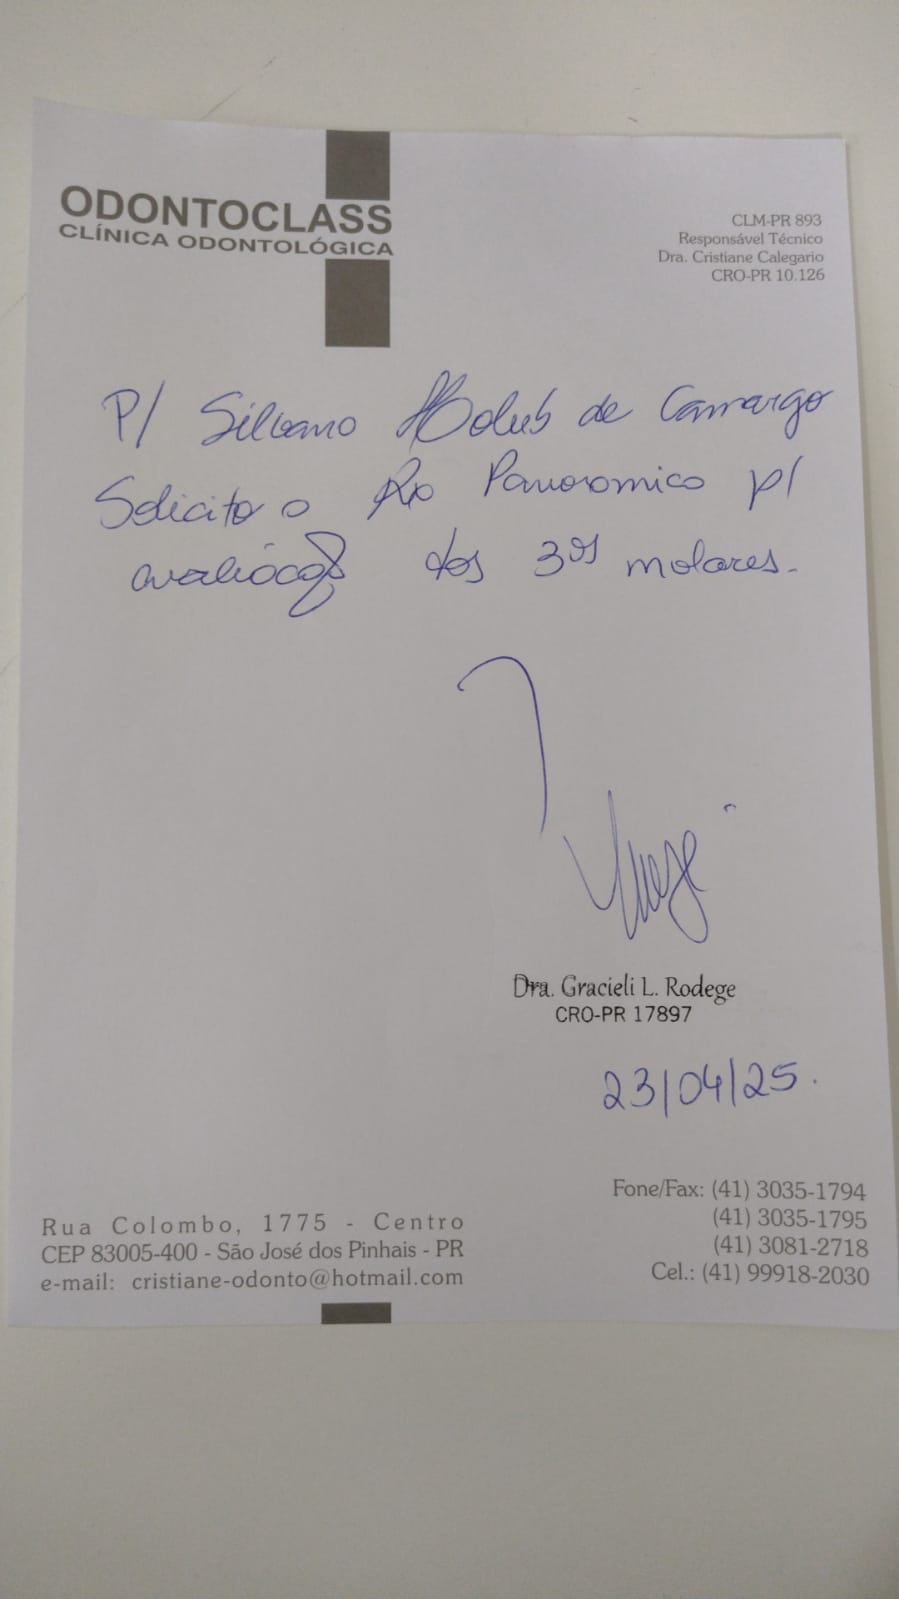 ODONTOCLASS
CLÍNICA ODONTOLÓGICA
CLM-PR 893
Responsável Técnico
Dra. Cristiane Calegario
CRO-PR 10.126
P/ Silvano Holub de Camargo
Solicito o Rx Panoramico p/
avaliação dos 3os molares.
Dra. Gracieli L. Rodege
CRO-PR 17897
23/04/25.
Rua Colombo, 1775 - Centro
CEP 83005-400 - São José dos Pinhais - PR
e-mail: cristiane-odonto@hotmail.com
Fone/Fax: (41) 3035-1794
(41) 3035-1795
(41) 3081-2718
Cel.: (41) 99918-2030